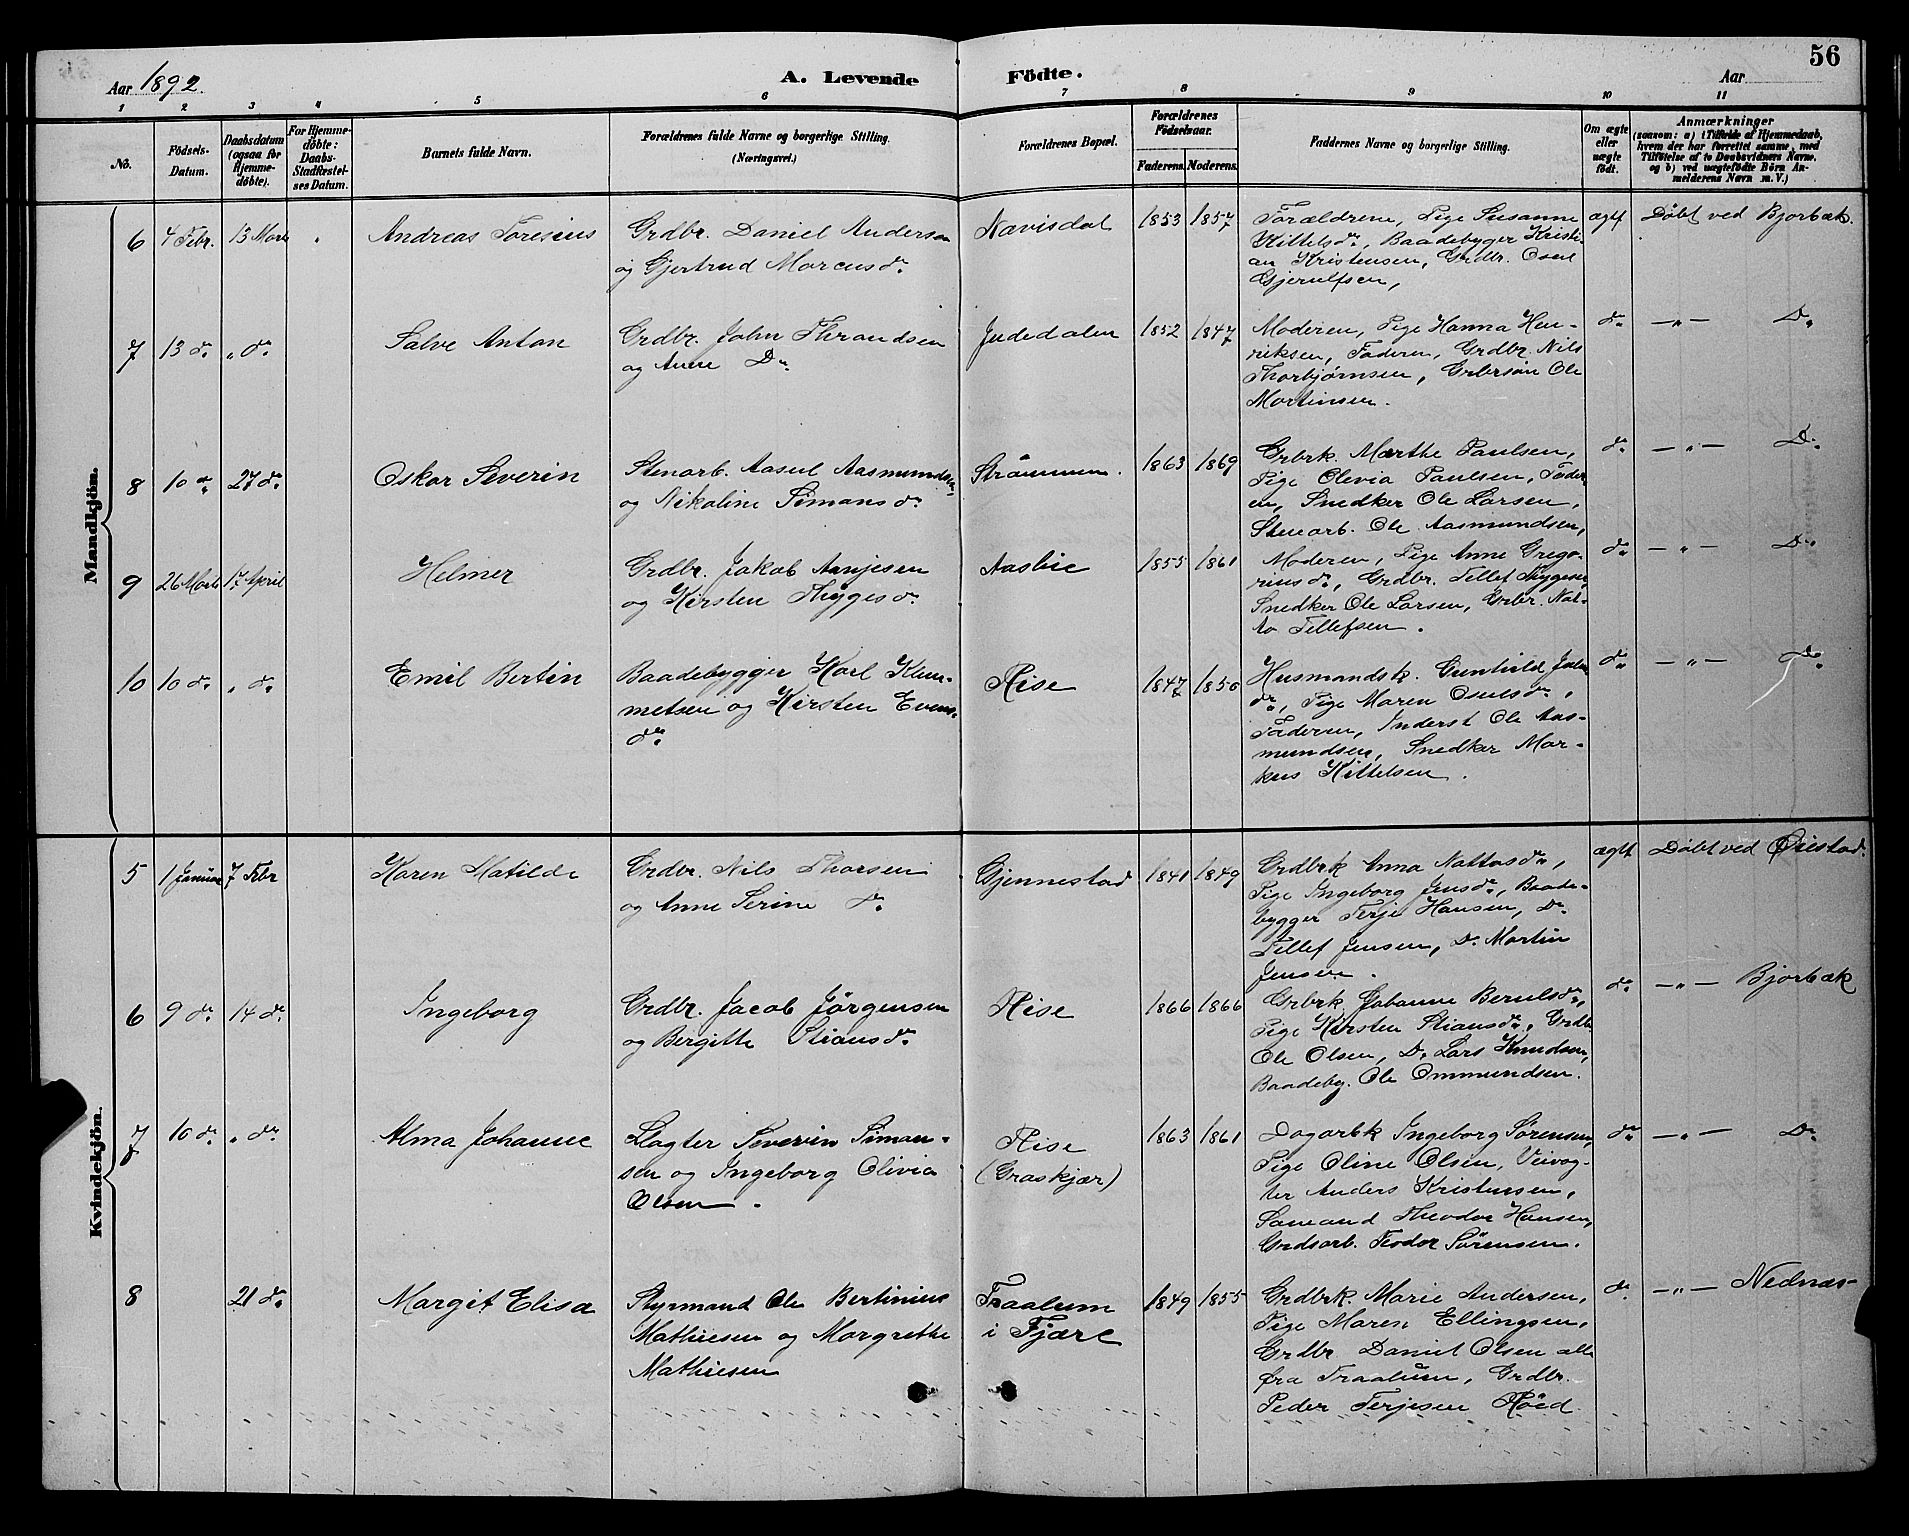 56
Aar 1892. A. Levende Födte. Aar
1 2 3 4 5 6 7 8 9 10 11
No.
Födsels-
Datum.
Daabsdatum
(ogsaa for
Hjemme-
döbte).
For Hjemme-
döbte:
Daabs-
Stadfæstel-
ses Datum.
Barnets fulde Navn.
Forældrenes fulde Navne og borgerlige Stilling.
(Næringsvei.)
Forældrenes Bopæl.
Forældrenes
Födselsaar.
Faderens. Moderens.
Faddernes Navne og borgerlige Stilling.
Om ægte
eller
uægte
født.
Anmærkninger
(saasom: a) i Tilfælde af Hjemmedaab,
hvem der har forrettet samme, med
Tilföielse af to Daabsvidners Navne,
og b) ved uægtefödte Börn An-
melderens Navn m. V.)
Mandkjön.
6 4 Febr. 13 Marts Andreas Toresius
Grdbr. Daniel Anderson
og Gjertrud Marcusdr.
Navisdal 1853 1857
Forældrene, Pige Susanne
Kittelsdr., Baadebygger Kristi-
an Kristensen, Grdbr. Osul
Gjerulfsen,
ægt Döbt ved Bjorbæk.
7 13 do. " do. Salve Anton
Grdbr. John Thrandsen
og Anne Do.
Judedalen 1852 1847
Moderen, Pige Hanna Hen-
riksen, Faderen, Grdbr. Nils
Thorbjörnsen, Grbrsön Ole
Martinsen.
do. — " — Do.
8 10 do. 27 do. Oskar Severin
Stenarb. Aasul Aasmundsen
og Nikoline Simonsdr.
Strömmen. 1863 1869
Grbrk. Marthe Paulsen,
Pige Olevia Paulsen, Fader-
en, Snedker Ole Larsen,
Stenarb. Ole Aasmundsen,
do. — " — Do.
9 26 Marts 17 April Helmer
Grdbr. Jakob Aanjesen
og Kirsten Thygesdr.
Aasbie 1855 1861
Moderen, Pige Anne Grego-
riusdr., Grdbr. Tellef Thygesen,
Snedker Ole Larsen, Grbr. Nat-
to Tellefsen.
do. — " — Do.
10 10 do. " do. Emil Bertin
Baadebygger Karl Klem-
metsen og Kirsten Evens-
dr.
Rise 1847 1850
Husmandsk. Gunhild Johns
dr., Pige Maren Osulsdr.,
Faderen, Inderst Ole Aas-
mundsen, Snedker Mar-
kus Kittelsen.
do. — " — do.
Kvindekjön.
5 1 Januar 7 Febr Karen Matilde
Grdbr. Nils Thorsen
og Anne Serine do.
Gjennestad 1841 1849
Grdbrk Anna Nattosdr.,
Pige Ingeborg Jensdr., Baade-
bygger Terje Hansen, Do.
Tellef Jensen, Do. Martin
Jensen.
ægt Döbt ved Öiestad.
6 9 do. 14 do. Ingeborg
Grdbr. Jacob Jörgensen
og Bergitte Stiansdr.
Rise 1866 1866
Grbrk. Johanne Berulsdr.,
Pige Kirsten Stiansdr., Grdbr.
Ole Olsen, Do. Lars Knudsen,
Baadeby. Ole Ommundsen.
do. — " — Bjorbæk
7 10 do. " do. Alma Johanne
Slagter Severin Simon-
sen og Ingeborg Olivia
Olsen.
Rise
(Graskjær)
1863 1861
Dagarbk Ingeborg Sörensen,
Pige Oline Olsen, Veivog-
ter Anders Kristensen,
Sömand Theodor Hansen,
Grdsarb. Teodor Sörensen.
do. — " — Do.
8 21 do. Margit Elisa
Styrmand Ole Bertinius
Mathiesen og Margrethe
Mathiesen
Traalum
i Fjære
1849 1855
Grdbrk. Marie Andersen,
Pige Maren Ellingsen,
Grdbr Daniel Olsen alle
fra Traalum, Grdbr.
Peder Terjesen Röed.
do. — " — Nednæs